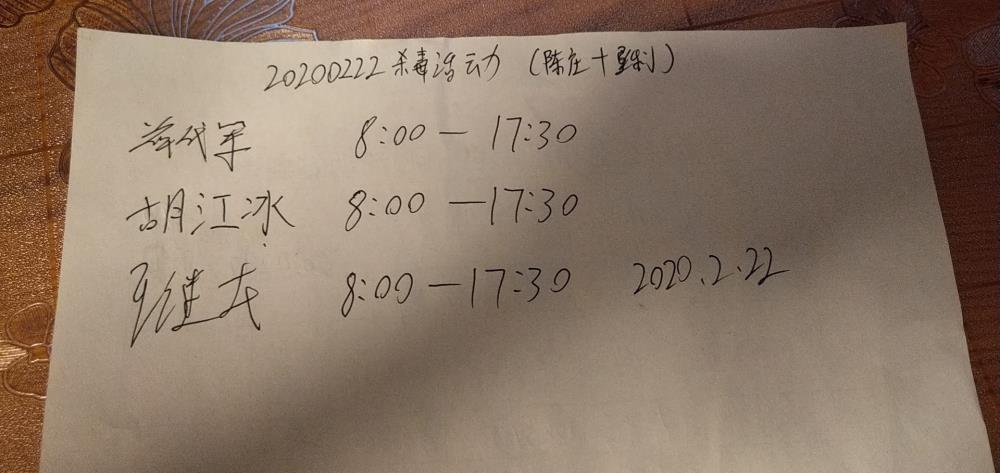 20200222杀毒活动 (陈庄十里
代军 8:00—17:30
胡江冰 8:00—17:30
8:00—17:30 2020.2.22